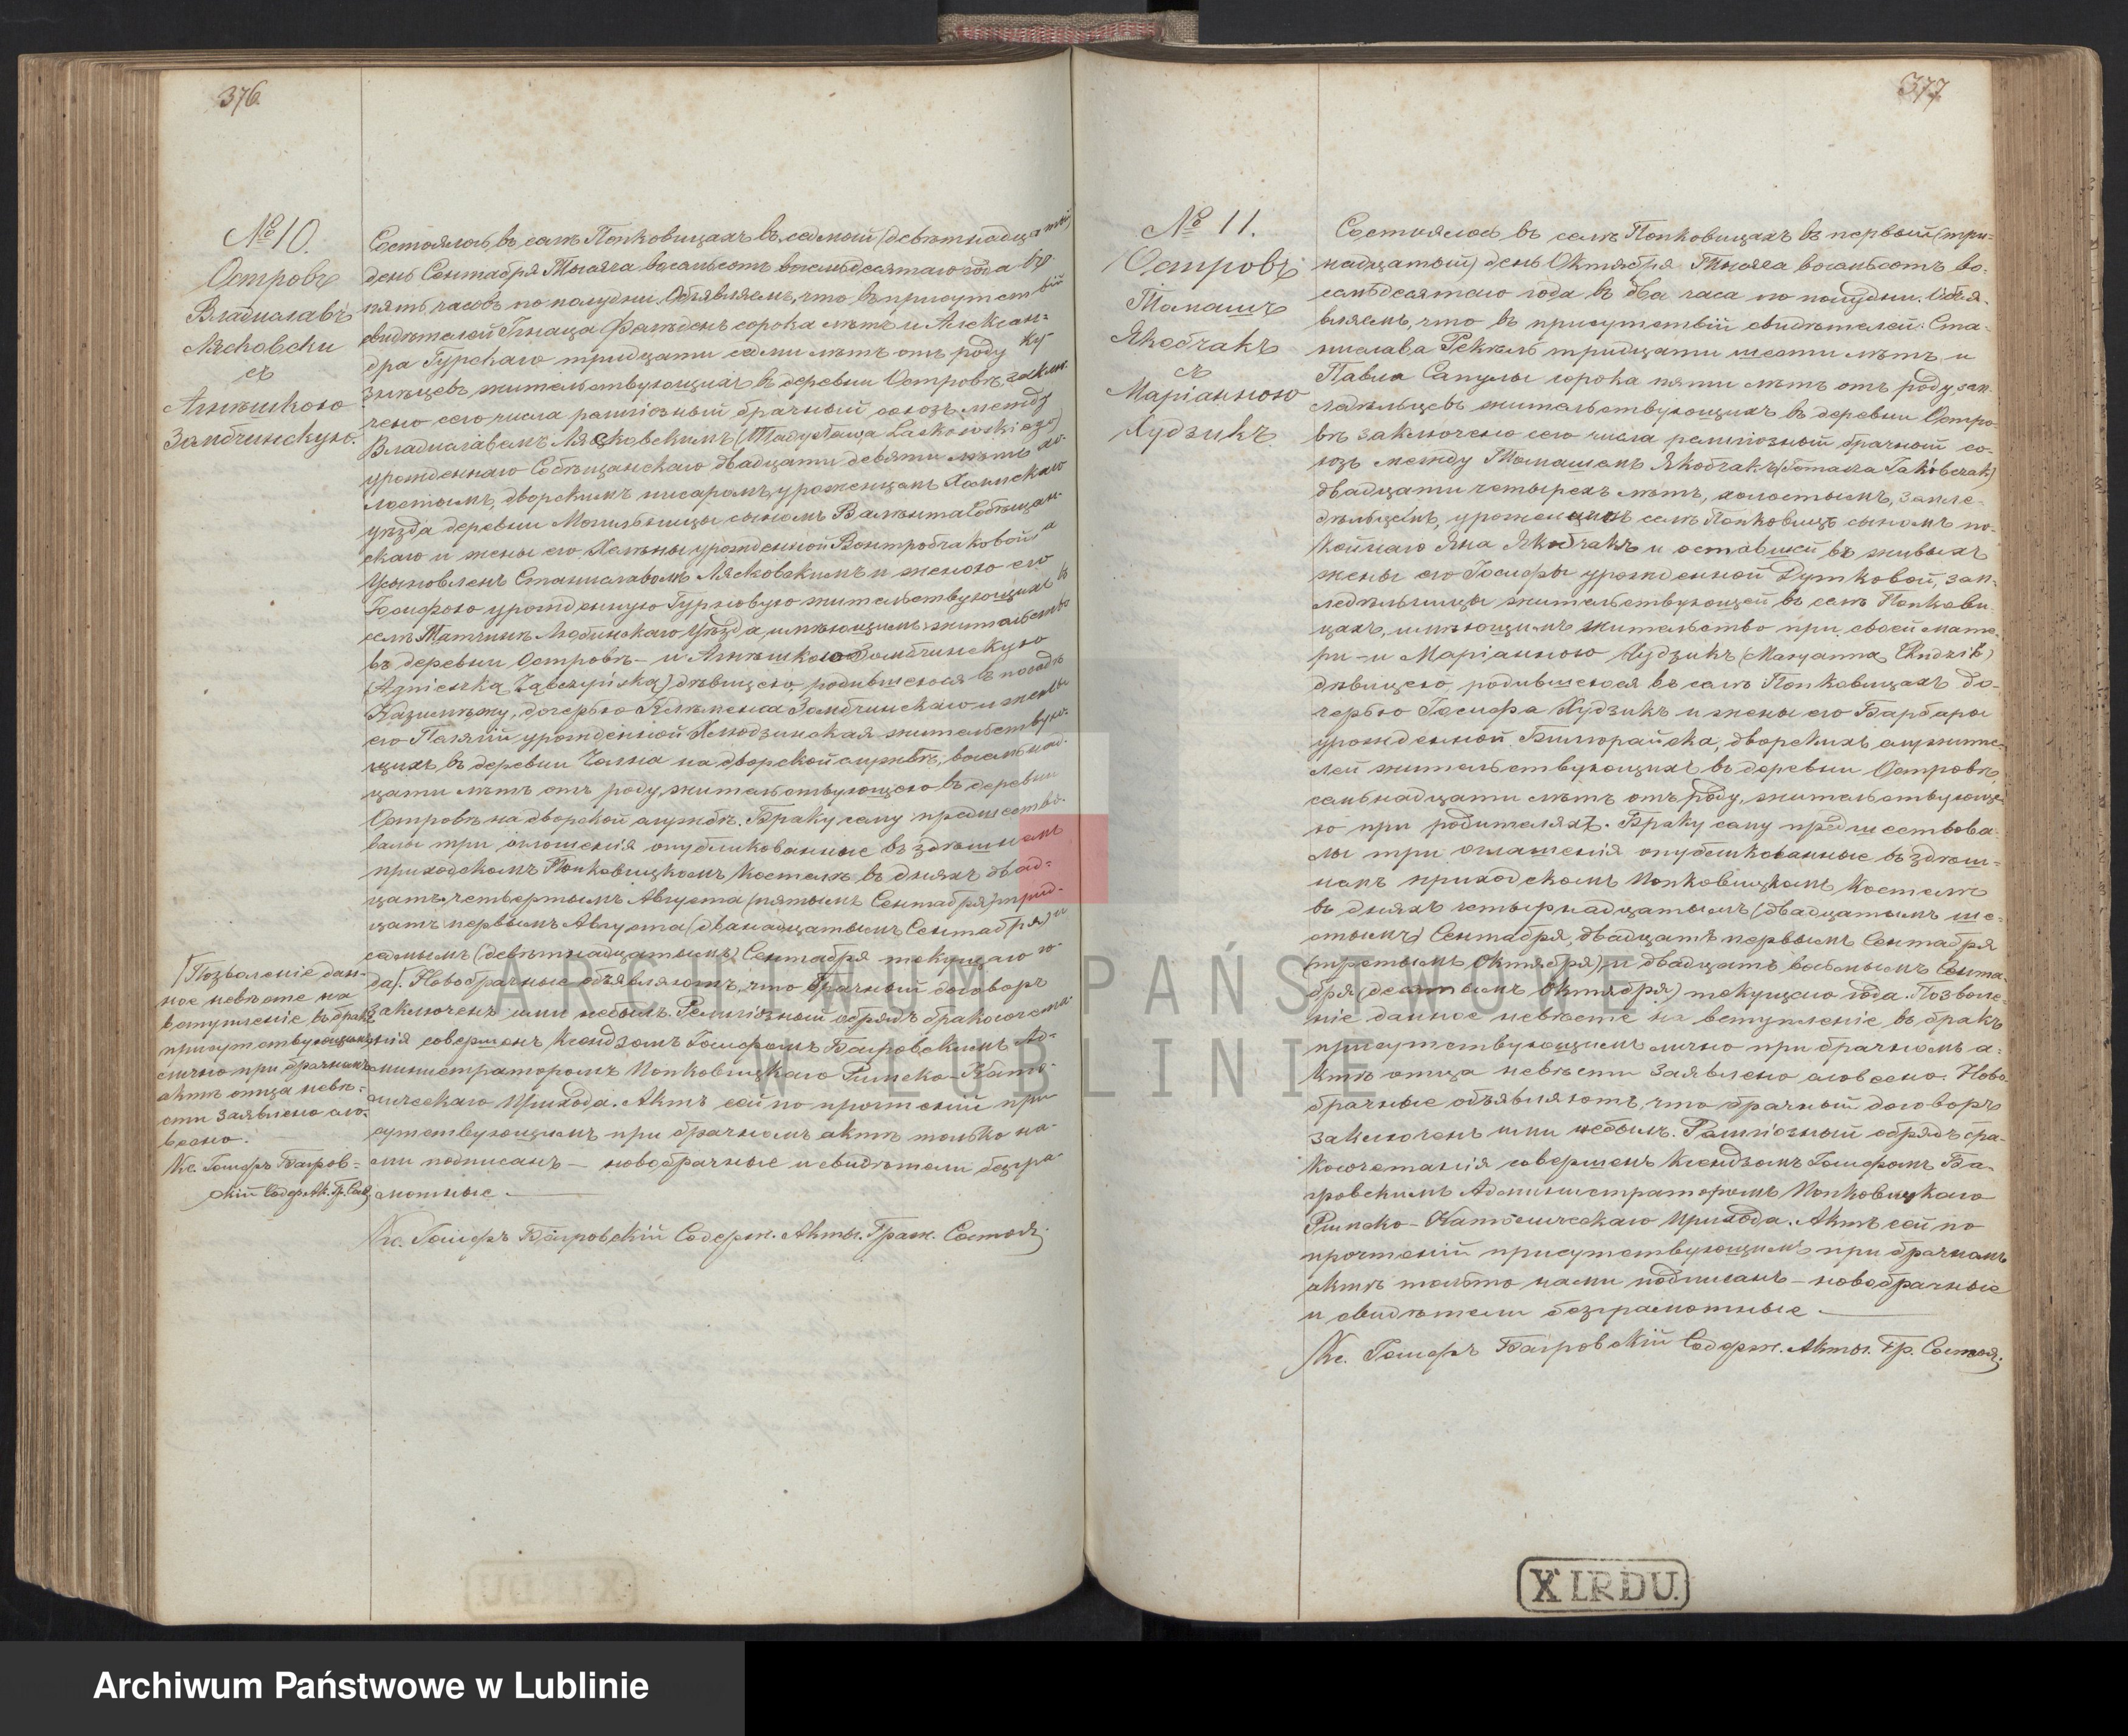 376.
№ 10.
Островъ
Владиславъ
Лясковски
съ
Агнѣшкою
Замбчинскую.
Состоялось въ селѣ Попковицахъ въ седмой (девятнадцатый)
день Сентября Тысяча восемьсотъ восемьдесятаго года въ
пять часовъ по полудни. Объявляемъ, что въ присутствіи
свидѣтелей Игнаца сорока лѣтъ и Алексан-
дра Гурскаго тридцати седми лѣтъ отъ роду ку-
знецевъ жительствующихъ въ деревни Островѣ, заклю-
чено сего числа религіозный брачный союзъ между
Владиславомъ Лясковскимъ (Laskowskiego)
урожденнаго Собѣщанскаго двадцати девяти лѣтъ хо-
лостымъ, дворскимъ писаромъ, уроженцемъ Холмскаго
уѣзда деревни сыномъ Валента Собѣщан-
скаго и жены его Хелены урожденной Вонтробчаковой а
Усыновленъ Станиславомъ Лясковскимъ и женою его
Іосифою урожденную Гурновую жительствующихъ въ
селѣ Татчинѣ Любинскаго Уѣзда, имѣющимъ жительство
въ деревни Островѣ – и Агнѣшкою Замбчинскую
(Agnieszka Ząbczyńska) дѣвицею, родившеюся въ посадѣ
Казимѣжу, дочерью Клемента Замбчинскаго и жены
его Пелягіи урожденной Хлюдзинская жительствую-
щихъ въ деревни на дворской службѣ, восемьнад-
цати лѣтъ отъ роду, жительствующею въ деревни
Островѣ на дворской службѣ. Браку сему предшество-
вали три оглошенія опубликованные въ здѣшнемъ
приходскомъ Попковицкомъ костелѣ въ дняхъ двад-
цать четвертымъ Августа (пятымъ Сентября) трид-
цать первымъ Августа (дванадцатымъ Сентября) и
седмымъ (девятнадцатымъ) Сентября текущаго го-
да/. Новобрачные объявляютъ, что брачный договоръ
Заключенъ ими небылъ. Религіозный обрядъ бракосочета-
нія совершенъ Ксендзомъ Іосифомъ Багровскимъ Ад-
министраторомъ Попковицкаго Римско-Като-
лическаго Прихода. Актъ сей по прочтеніи при-
сутствующимъ при брачномъ актѣ только на-
ми подписанъ – новобрачные и свидѣтели безгра-
мотные.
/Позволеніе дан-
ное невѣсте на
вступленіе въ бракъ
присутствующимъ
лично при брачномъ
актѣ отца невѣ-
сти заявлено сло-
весно.
Кс. Іосифъ Багров-
скій Содерж. Ак. Гр. Сост.
Кс. Іосифъ Багровскій Содерж. Акты. Граж. Состоя.
377
№ 11.
Островъ
Томашъ
Якобчакъ
съ
Маріанною
Худзикъ
Состоялось въ селѣ Попковицахъ въ первый (три-
надцатый) день Октября Тысяча восемьсотъ во-
семьдесятаго года въ два часа по полудни. Объя-
вляемъ, что въ присутствіи свидѣтелей: Ста-
нислава Рекель тридцати шести лѣтъ и
Павла Сапулы сорока пяти лѣтъ отъ роду, зем-
ледѣльцевъ жительствующихъ въ деревни Остро-
вѣ заключено сего числа религіозный брачный со-
юзъ между Томашемъ Якобчакъ (Tomasza Jakóbczak)
двадцати четырехъ лѣтъ, холостымъ, земле-
дѣльцемъ, уроженцемъ селѣ Попковицъ сыномъ по-
койнаго Яна Якобчакъ и оставшей въ живыхъ
жены его Іосифы урожденной Дутковой, зем-
ледѣльницы жительствующей въ селѣ Попкови-
цахъ, имѣющимъ жительство при своей мате-
ри – и Маріанною Худзикъ (Maryanna Chudzik)
дѣвицею, родившеюся въ селѣ Попковицахъ до-
черью Іосифа Худзикъ и жены его Барбары
урожденной Билгорайска, дворскихъ служите-
лей жительствующихъ въ деревни Островѣ,
семьнадцати лѣтъ отъ роду, жительствующе-
ю при родителяхъ. Браку сему предшествова-
лы три оглашенія опубликованные въ здѣш-
немъ приходскомъ Попковицкомъ Костелѣ
въ дняхъ четырнадцатымъ (двадцатымъ ше-
стымъ) Сентября, двадцать первымъ Сентября
(третьимъ Октября) и двадцать восьмымъ Сентя-
бря (десятымъ Октября) текущаго года. Позволе-
ніе данное невѣсте на вступленіе въ бракъ
присутствующимъ лично при брачномъ а-
ктѣ отца невѣсти Заявлено словесно. Ново-
брачные объявляютъ, что брачный договоръ
заключенъ ими небылъ. Религіозный обрядъ бра-
косочетанія совершенъ Ксендзомъ Іосифомъ Ба-
гровскимъ Администраторомъ Попковицкаго
Римско-Католическаго Прихода. Актъ сей по
прочтеніи присутствующимъ при брачномъ
актѣ только нами подписанъ – новобрачные
и свидѣтели безграмотные.
Кс. Іосифъ Багровскій Содерж. Акты. Гр. Состоя.
X IRDU.
ARCHIWUM PAŃSTWOWE
W LUBLINIE
Archiwum Państwowe w Lublinie